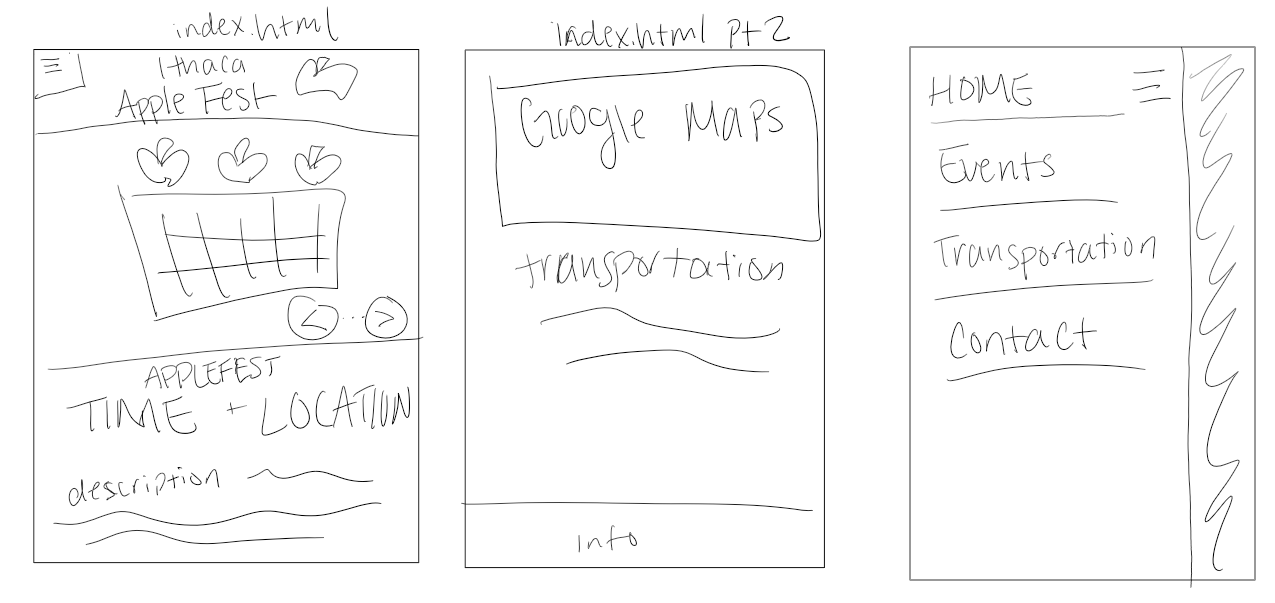 index.html
Ithaca
Apple Fest
APPLEFEST
TIME + LOCATION
description
index.html pt 2
Google Maps
transportation
info
HOME
Events
Transportation
Contact